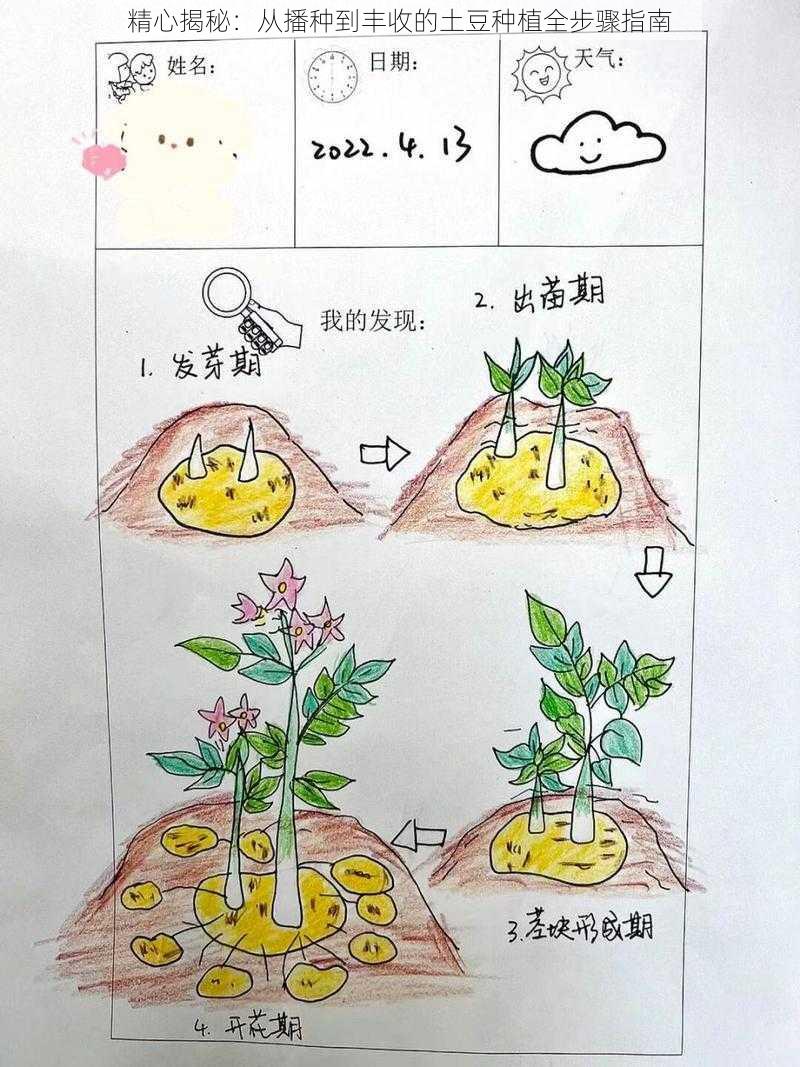 精心揭秘：从播种到丰收的土豆种植全步骤指南
姓名：
日期：
天气：
2022.4.13
我的发现：
1. 发芽期
2. 出苗期
3.茎块形成期
4. 开花期